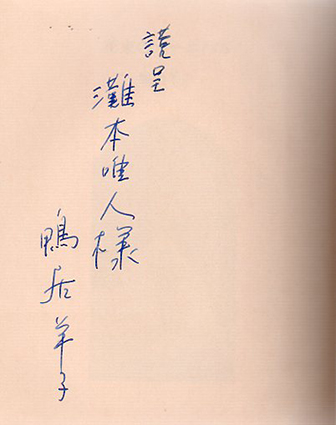 謹呈
灘本唯人様
鴨居羊子